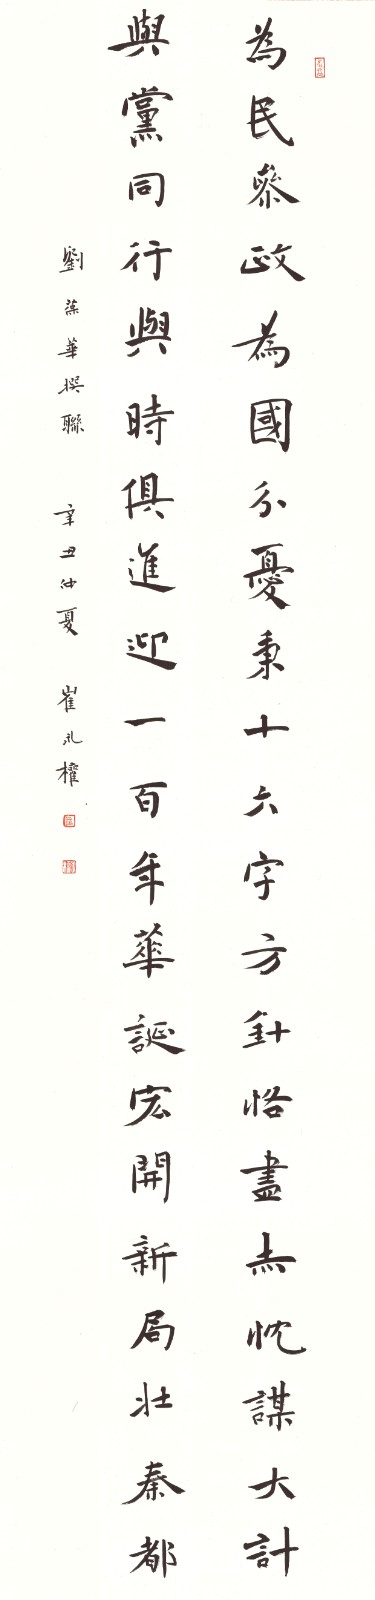 為民參政為國分憂秉十六字方針恪盡赤忱謀大計
與黨同行與時俱進迎一百年華誕宏開新局壯秦都
劉葆華撰聯 辛丑仲夏 崔孔權